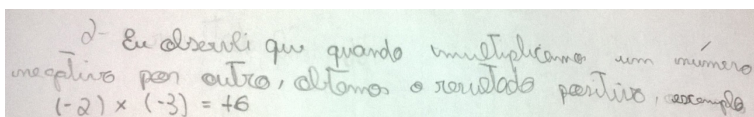 2- Eu observei que quando multiplicamos um número
negativo por outro, obtemos o resultado positivo, exemplo
(-2) x (-3) = +6